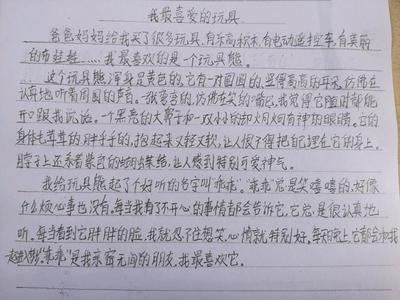 我最喜爱的玩具
爸爸妈妈给我买了很多玩具,有乐高积木,有电动遥控车,有美丽
的布娃娃……我最喜欢的是一个玩具熊。
这个玩具熊浑身是黄色的,它有一对圆圆的,竖得高高的耳朵,仿佛在
认真地听着周围的声音。一张弯弯的,仿佛在笑的嘴巴,我觉得它随时都能
开口跟我说话。一个黑亮的大鼻子和一双小小的却火灼灼有神的眼睛。它的
身体毛茸茸的,胖乎乎的,抱起来又轻又软,让人恨不得把自己埋在它的身上。
脖子上还系着紫色的蝴蝶结,让人感到特别可爱神气。
我给玩具熊起了个好听的名字叫“乖乖”。“乖乖”总是笑嘻嘻的,好像
什么烦心事也没有。每当我有了不开心的事情都会告诉它,它总是很认真地
听。每当看到它胖胖的脸,我就忍不住想笑,心情就特别好。每天晚上,它都会和我
一起入睡。“乖乖”是我亲密无间的朋友,我最喜欢它。